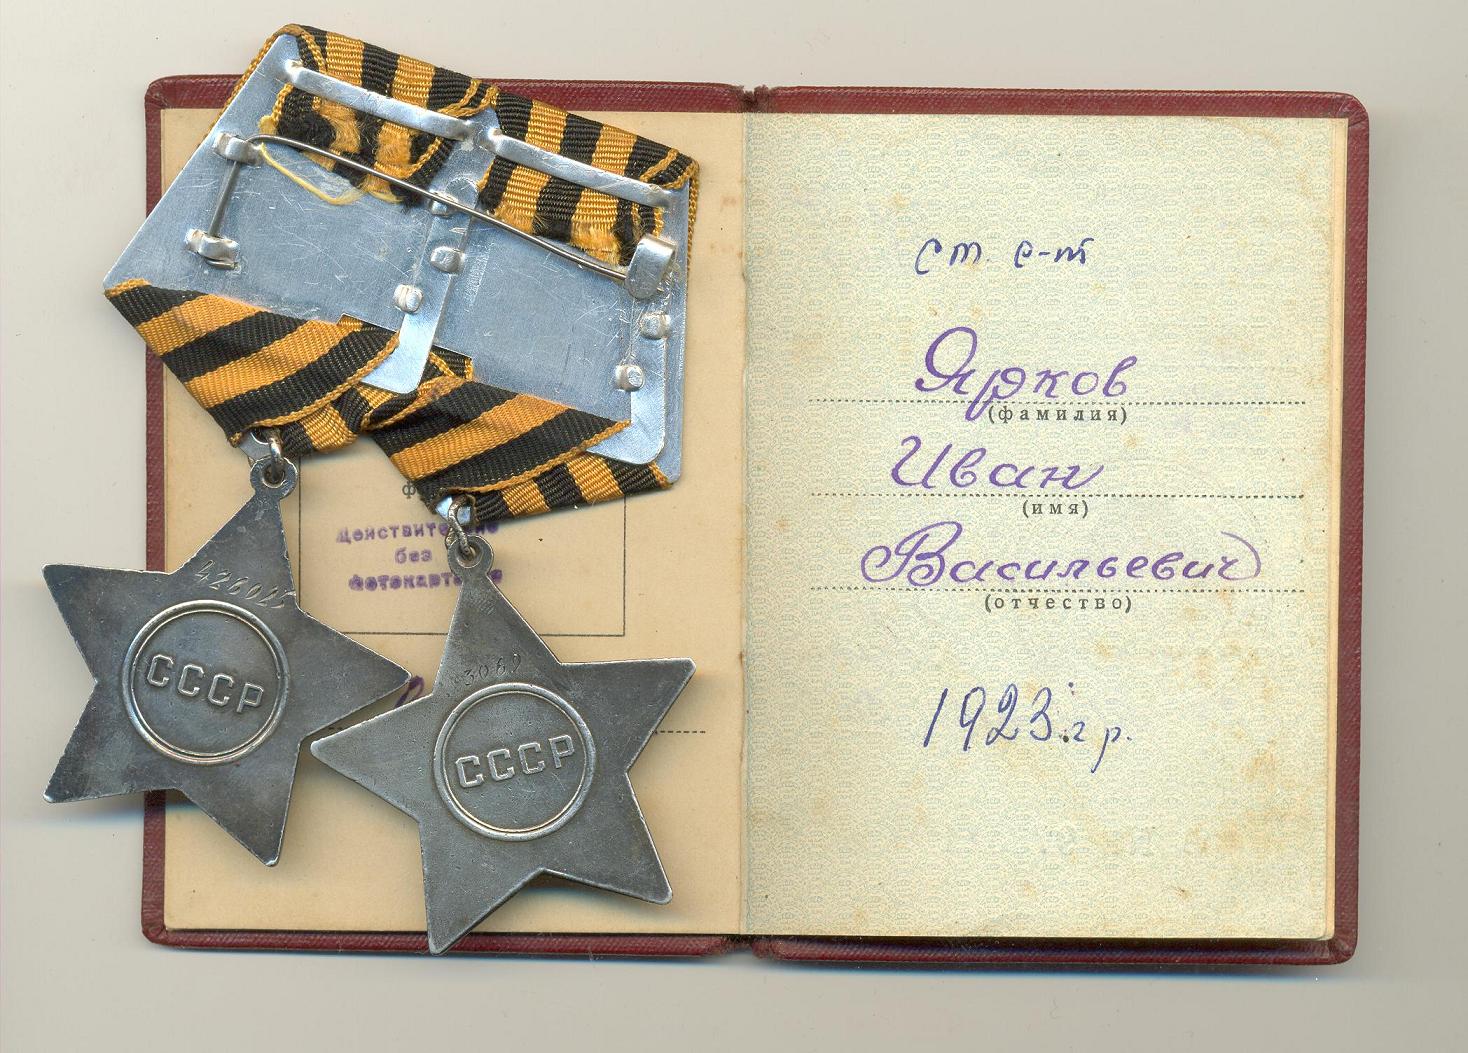 Действительно
без
фотокарточки
426025
СССР
3062
СССР
ст. с-т
Ярков
(фамилия)
Иван
(имя)
Васильевич
(отчество)
1923 г р.